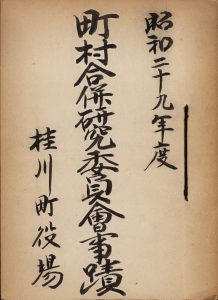 昭和二十九年度
町村合併研究委員會事蹟
桂川町役場